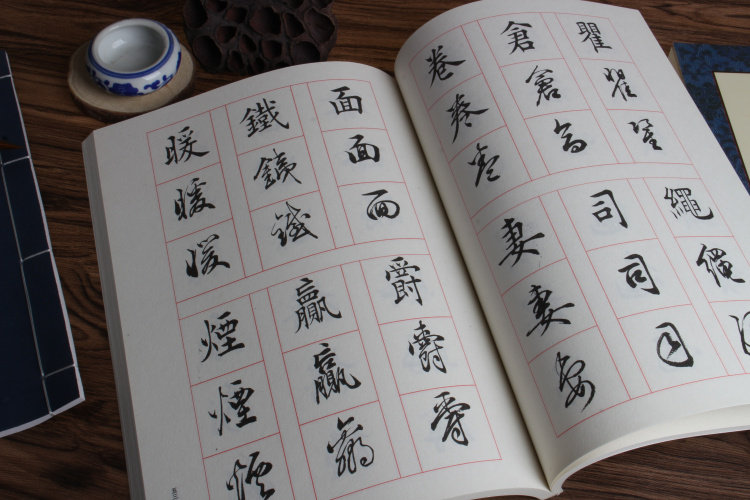 瞿瞿瞿
倉倉倉
卷卷卷
繩繩
司司司
妻妻妻
面面面
鐵鐵鐵
暖暖暖
爵爵爵
贏贏贏
煙煙煙